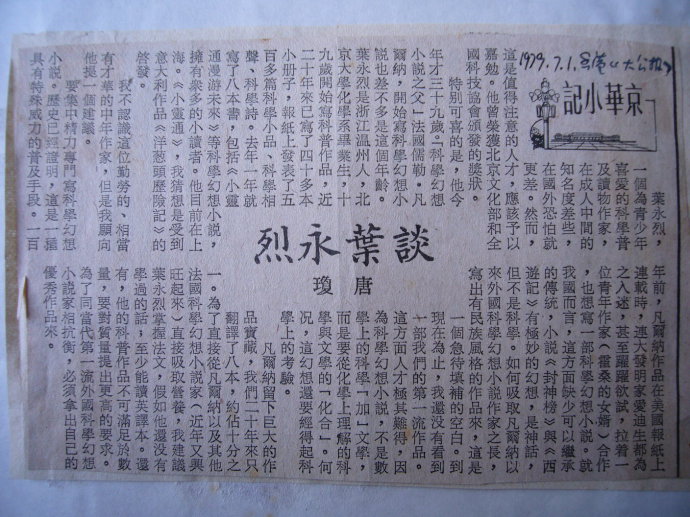 1979.7.1.香港《大公报》
京華小記
談葉永烈
唐瓊
葉永烈，
一個為青少年
喜愛的科學普
及讀物作家，
在成人中間的
知名度差些，
在國外恐怕就
更差。然而，
這是值得注意的人才，應該予以
嘉勉。他曾榮獲北京文化部和全
國科技協會頒發的獎狀。
特別可喜的是，他今
年才三十九歲。「科學幻想
小說之父」法國儒勒．凡
爾納，開始寫科學幻想小
說也差不多是這個年齡。
葉永烈是浙江溫州人，北
京大學化學系畢業生，十
九歲開始寫科普作品，近
二十年來已寫了四十多本
小册子，報紙上發表了五
百多篇科學小品、科學相
聲、科學詩。去年一年就
寫了八本書，包括《小靈
通漫游未來》等科學幻想小說，
擁有衆多的小讀者。他目前在上
海。《小靈通》，我猜想是受到
意大利作品《洋葱頭歷險記》的
啓發。
我不認識這位勤勞的、相當
有才華的中年作家，但是我願向
他提一個建議。
要集中精力專門寫科學幻想
小說。歷史已經證明，這是一種
具有特殊威力的普及手段。一百
年前，凡爾納作品在美國報紙上
連載時，連大發明家愛迪生都為
之入迷，甚至躍躍欲試，拉着一
位青年作家（霍桑的女婿）合作
，也想寫一部科學幻想小說。就
我國而言，這方面缺少可以繼承
的傳統，小說《封神榜》與《西
遊記》有極妙的幻想，是神話，
但不是科學。如何吸取凡爾納以
來外國科學幻想小說作家之長，
寫出有民族風格的作品來，這是
一個急待填補的空白。到
現在為止，我還沒有看到
一部我們的第一流作品。
這方面人才極其難得，因
為科學幻想小說，不是數
學上的科學「加」文學，
而是要從化學上理解的科
學與文學的「化合」。何
況，這幻想還要經得起科
學上的考驗。
凡爾納留下巨大的作
品寶藏，我們二十年來只
翻譯了八本，約佔十分之
一。為了直接從凡爾納以及其他
法國科學幻想小說家（近年又興
旺起來）直接吸取營養，我建議
葉永烈掌握法文，假如他還沒有
學過的話，至少能讀英譯本。還
有，他的科普作品不可滿足於數
量，要對質量提出更高的要求。
為了同當代第一流外國科學幻想
小說家相抗衡，必須拿出自己的
優秀作品來。